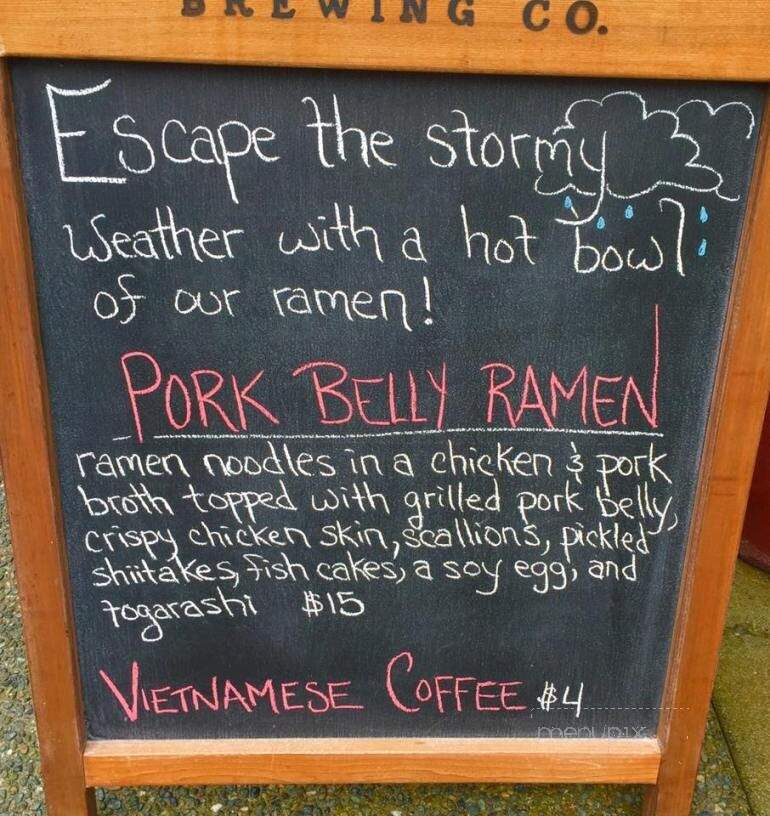 BREWING CO.
Escape the stormy
weather with a hot bowl
of our ramen!
PORK BELLY RAMEN
ramen noodles in a chicken & pork
broth topped with grilled pork belly,
crispy chicken skin, scallions, pickled
shiitakes, fish cakes, a soy egg, and
togarashi $15
VIETNAMESE COFFEE $4
menupix